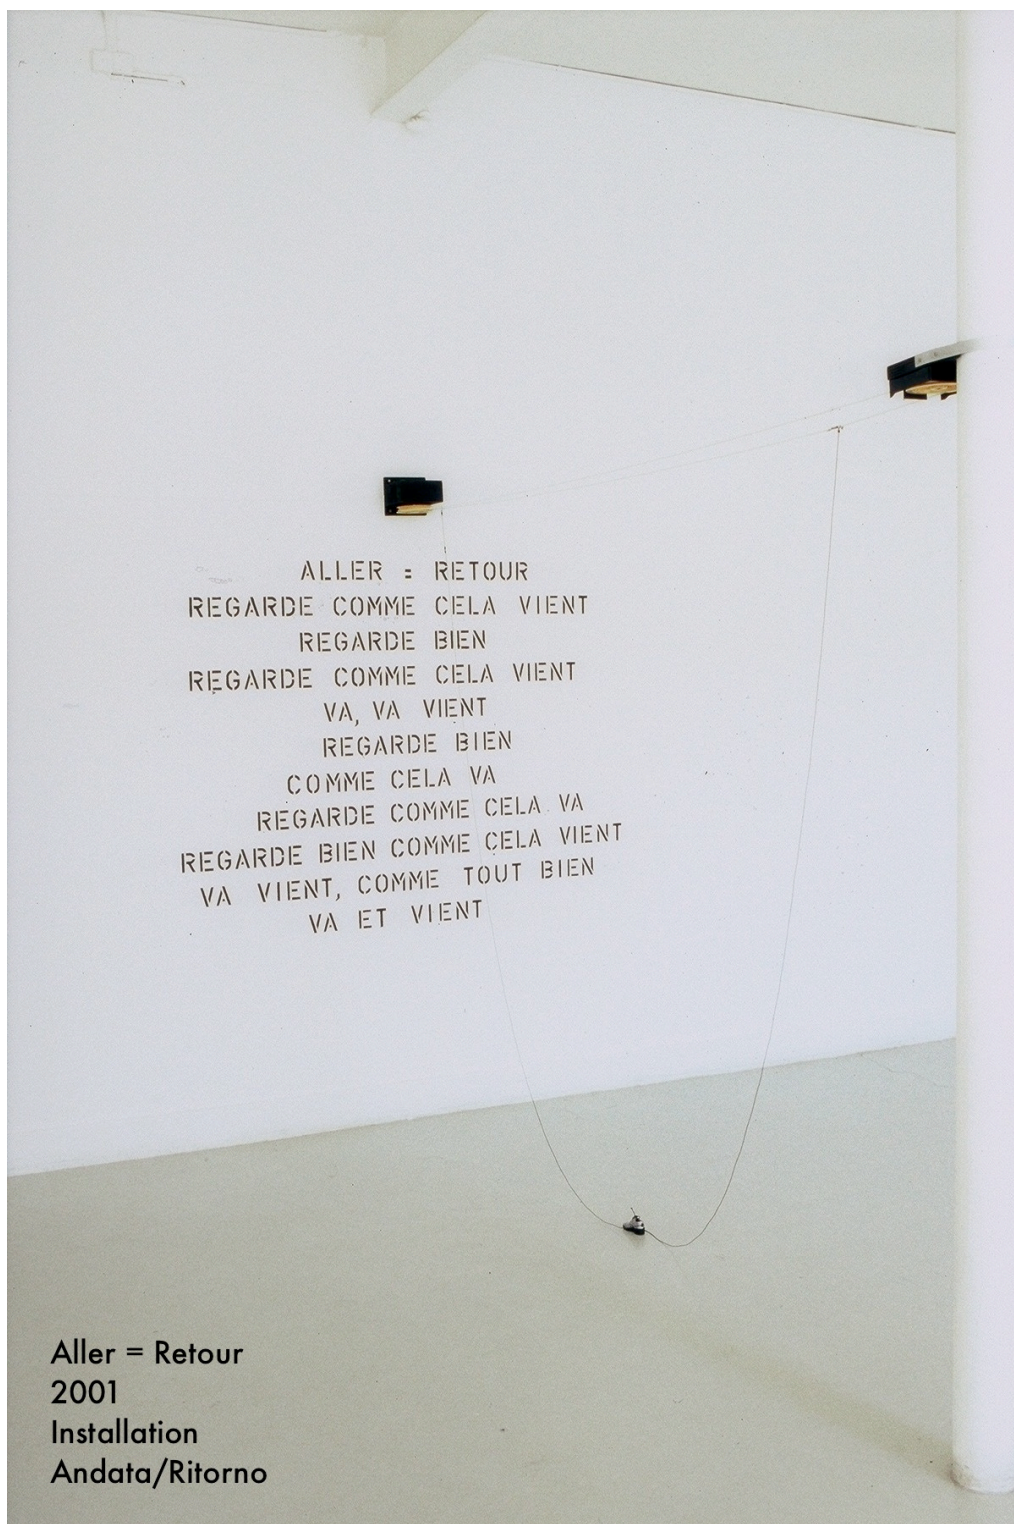 ALLER = RETOUR
REGARDE COMME CELA VIENT
REGARDE BIEN
REGARDE COMME CELA VIENT
VA, VA VIENT
REGARDE BIEN
COMME CELA VA
REGARDE COMME CELA VA
REGARDE BIEN COMME CELA VIENT
VA VIENT, COMME TOUT BIEN
VA ET VIENT
Aller = Retour
2001
Installation
Andata/Ritorno